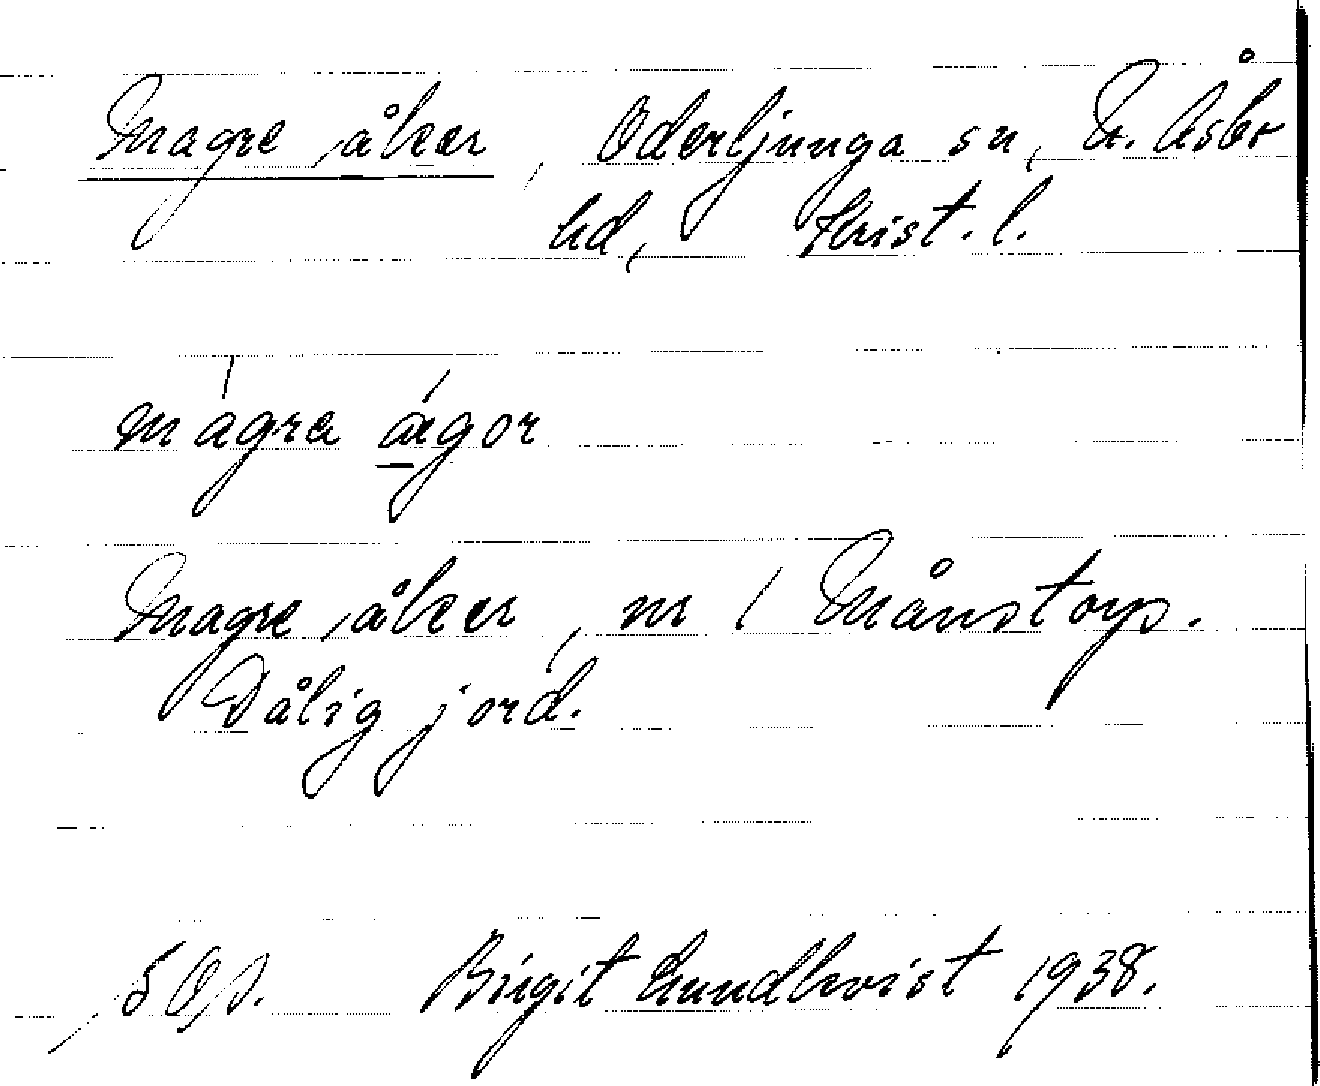 Magre åker, Oderljunga sn, N. Åsbo
hd, Krist. l.
mágra ǽgor
Magre åker, nr 1 Månstorp.
Dålig jord.
Birgit Lundkvist 1938.